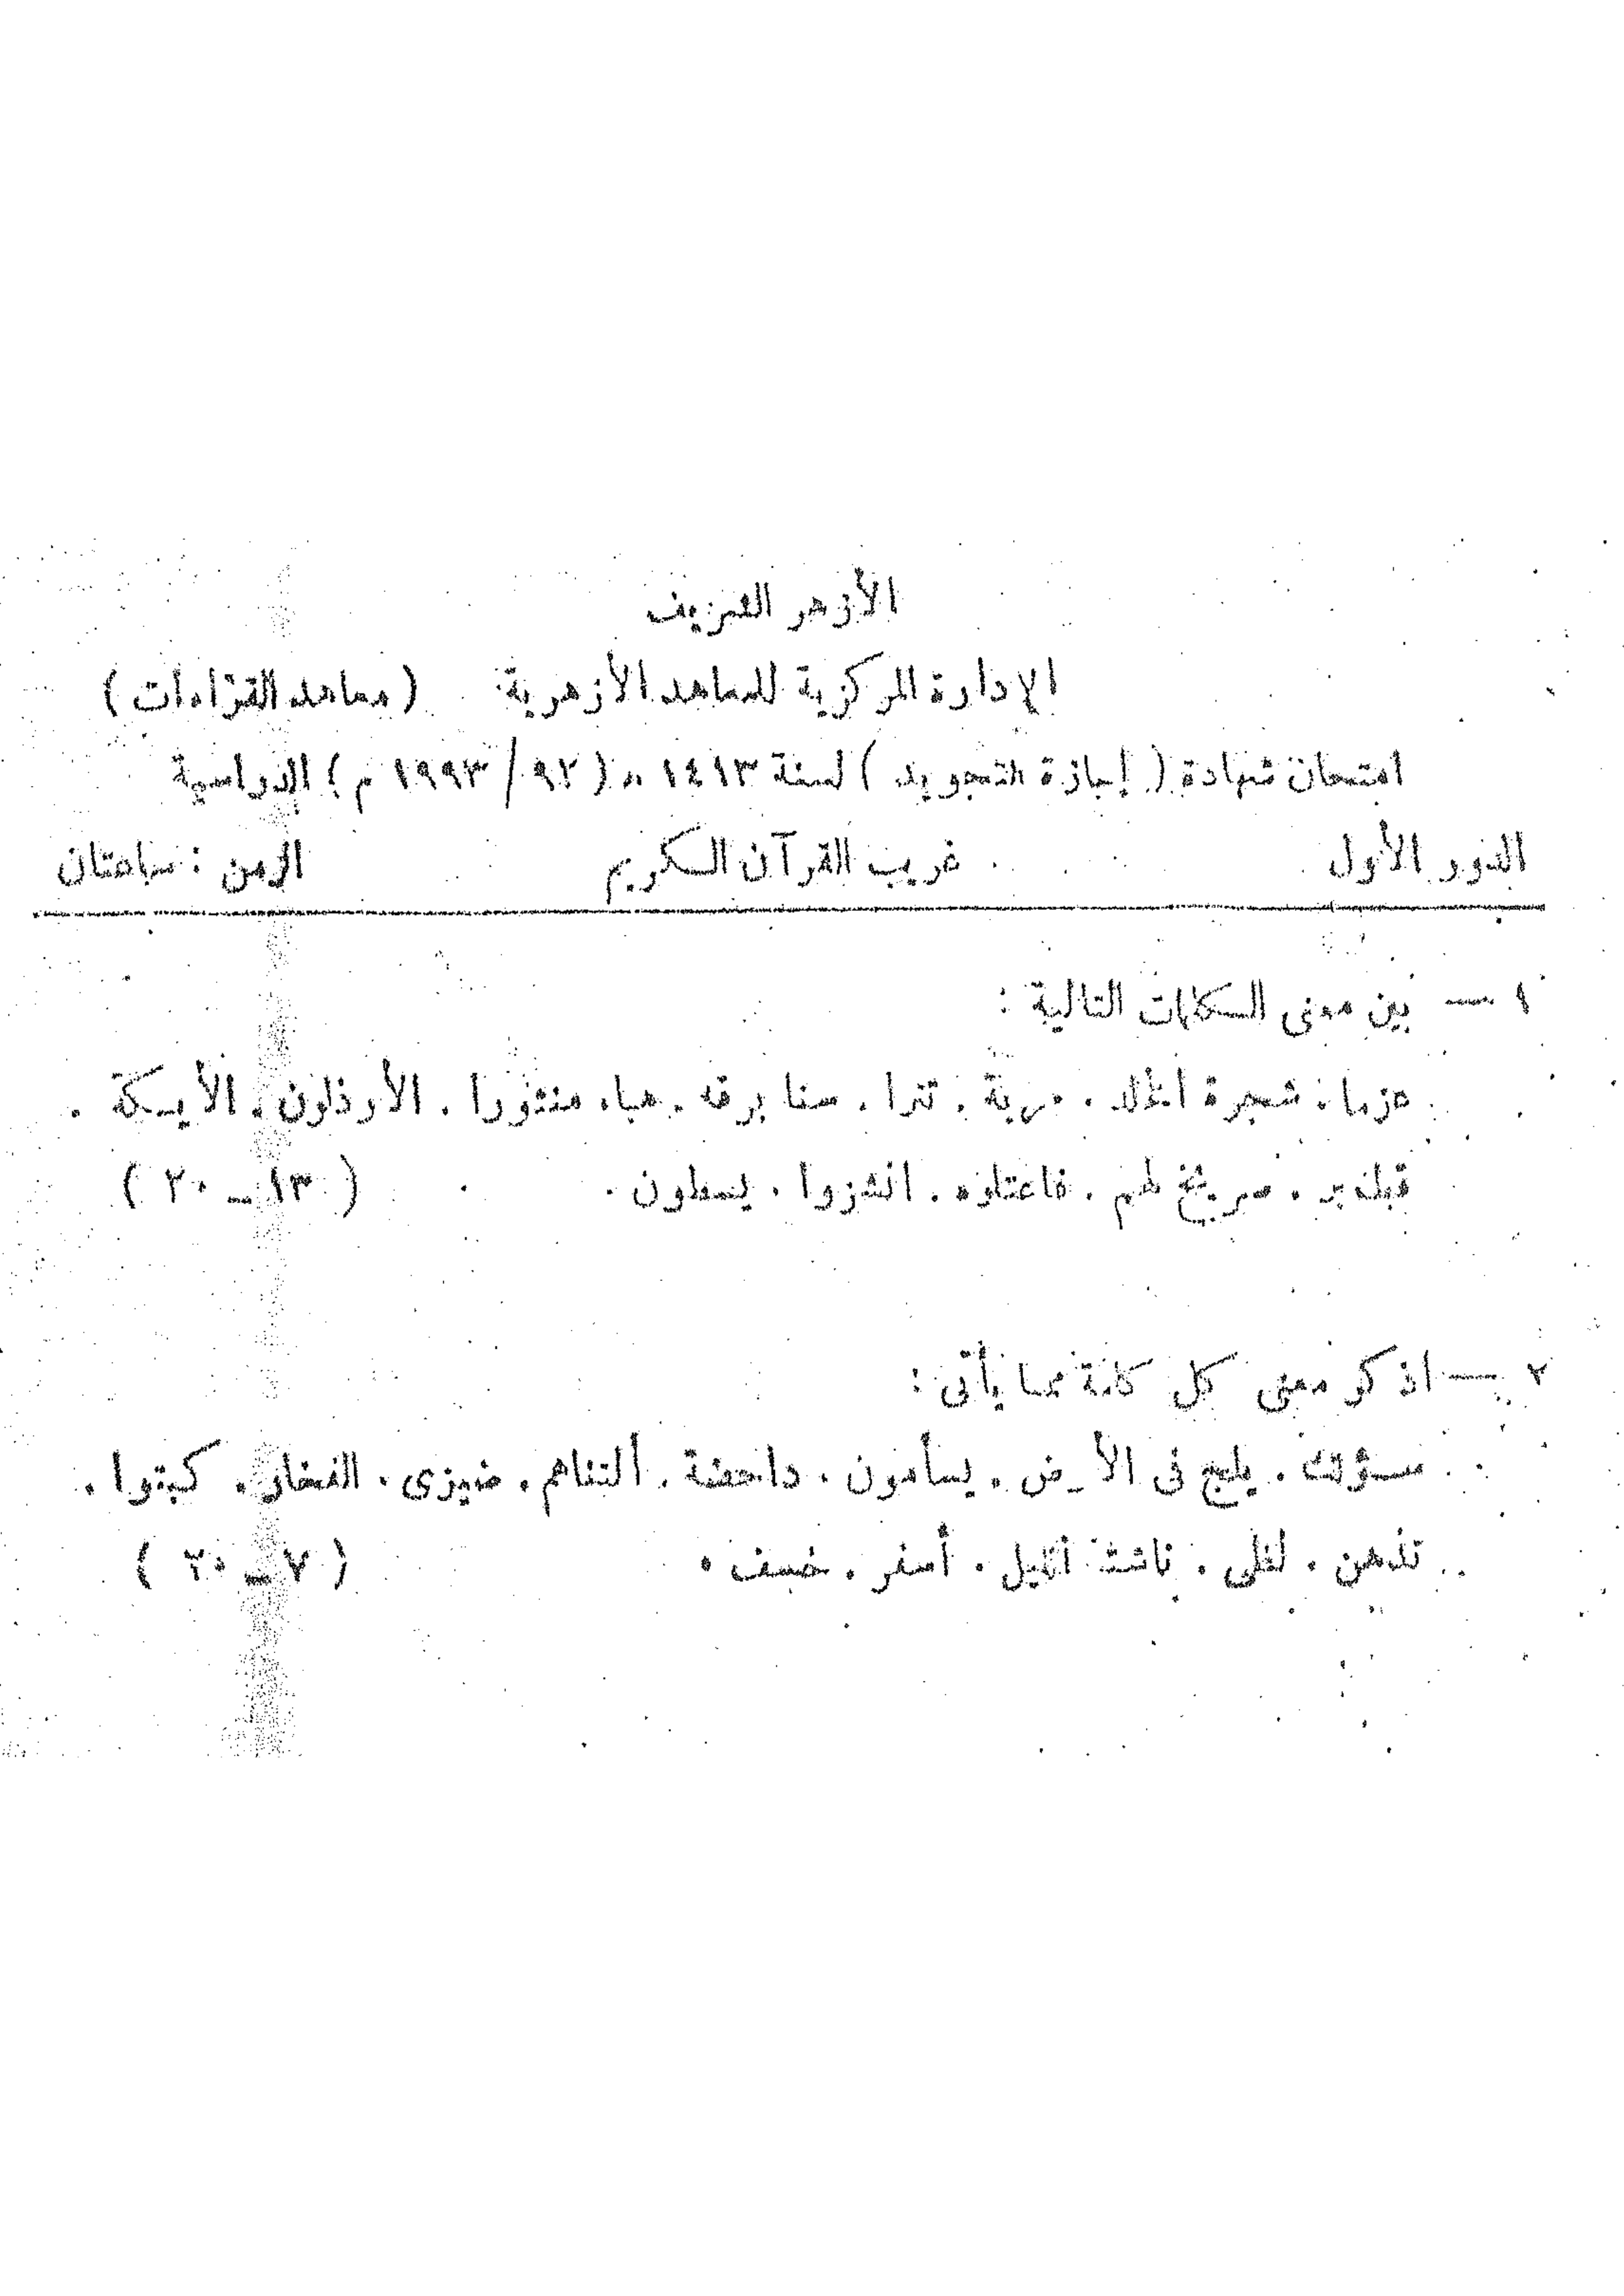 الأزهر الشريف
الإدارة المركزية للمعاهد الأزهرية (معاهد القراءات)
امتحان شهادة ( إجازة التجويد ) لسنة ١٤١٣ هـ ( ٩٢ / ١٩٩٣ م ) الدراسية
الدور الأول غريب القرآن الكريم الزمن : ساعتان
١ — بين معنى الكلمات التالية :
عزما . شجرة الخلد . مرية . تترا . سنا برقه . هباء منثورا . الأرذلون . الأيكة .
صريخ لهم . فاعتلوه . انشزوا . يسطون . ( ١٣ - ٢٠ )
٢ — اذكر معنى كل كلمة مما يأتى :
يلج فى الأرض . يسأمون . داحضة . ألتناهم . ضيزى . الفخار . كبتوا .
تدهن . لظى . ناشئة الليل . أسفر . خسف . ( ٧ - ٢٠ )